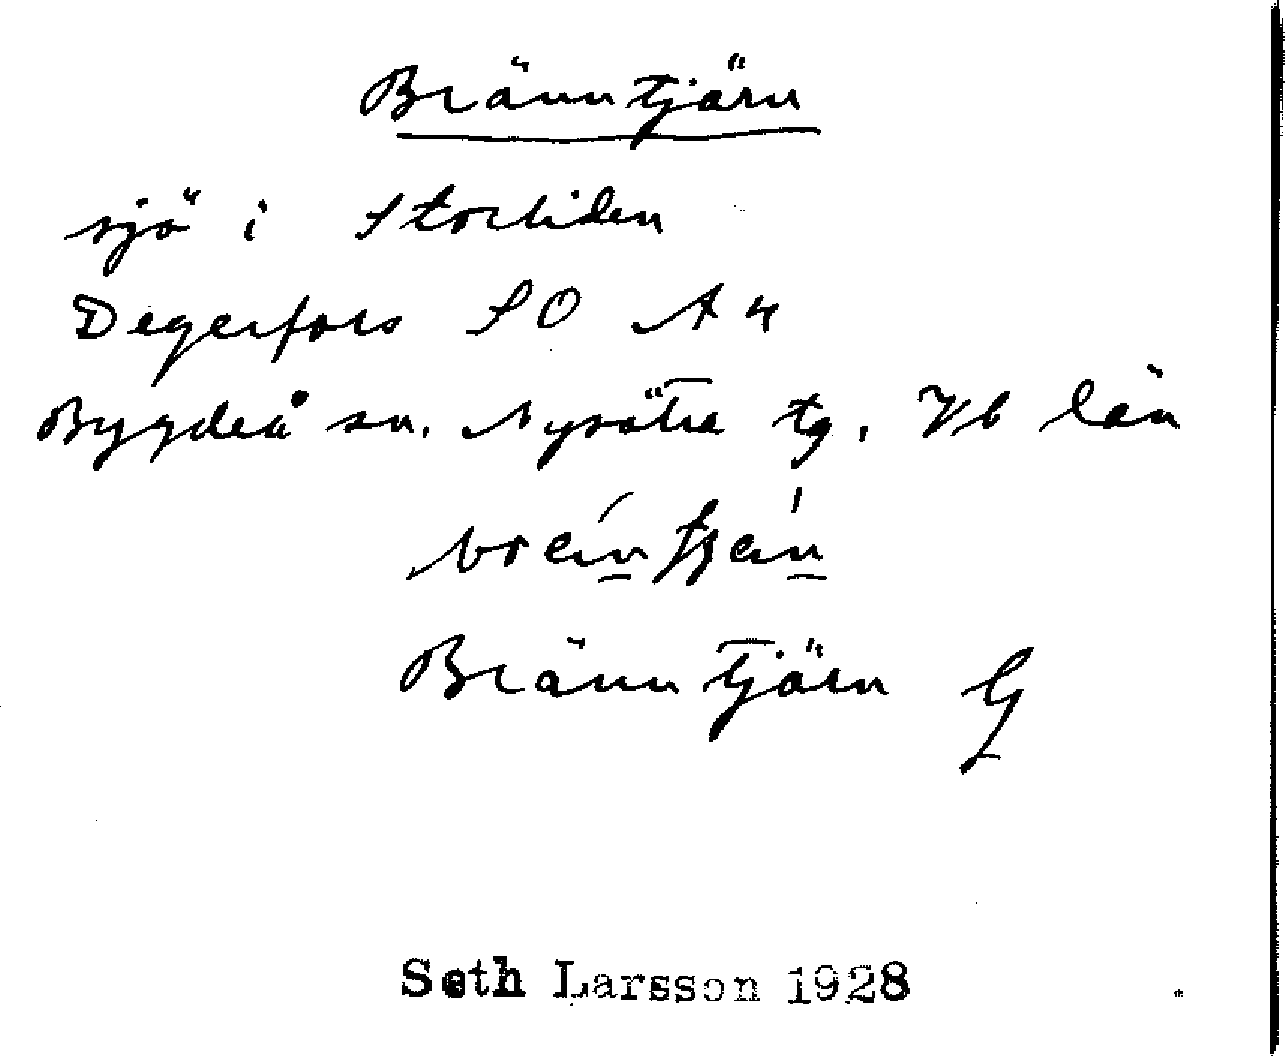 Bränntjärn
sjö i Storliden
Degerfors SO A 4
Bygdeå sn. Nysätra tg. Vb län
Bränntjärn G
Seth Larsson 1928